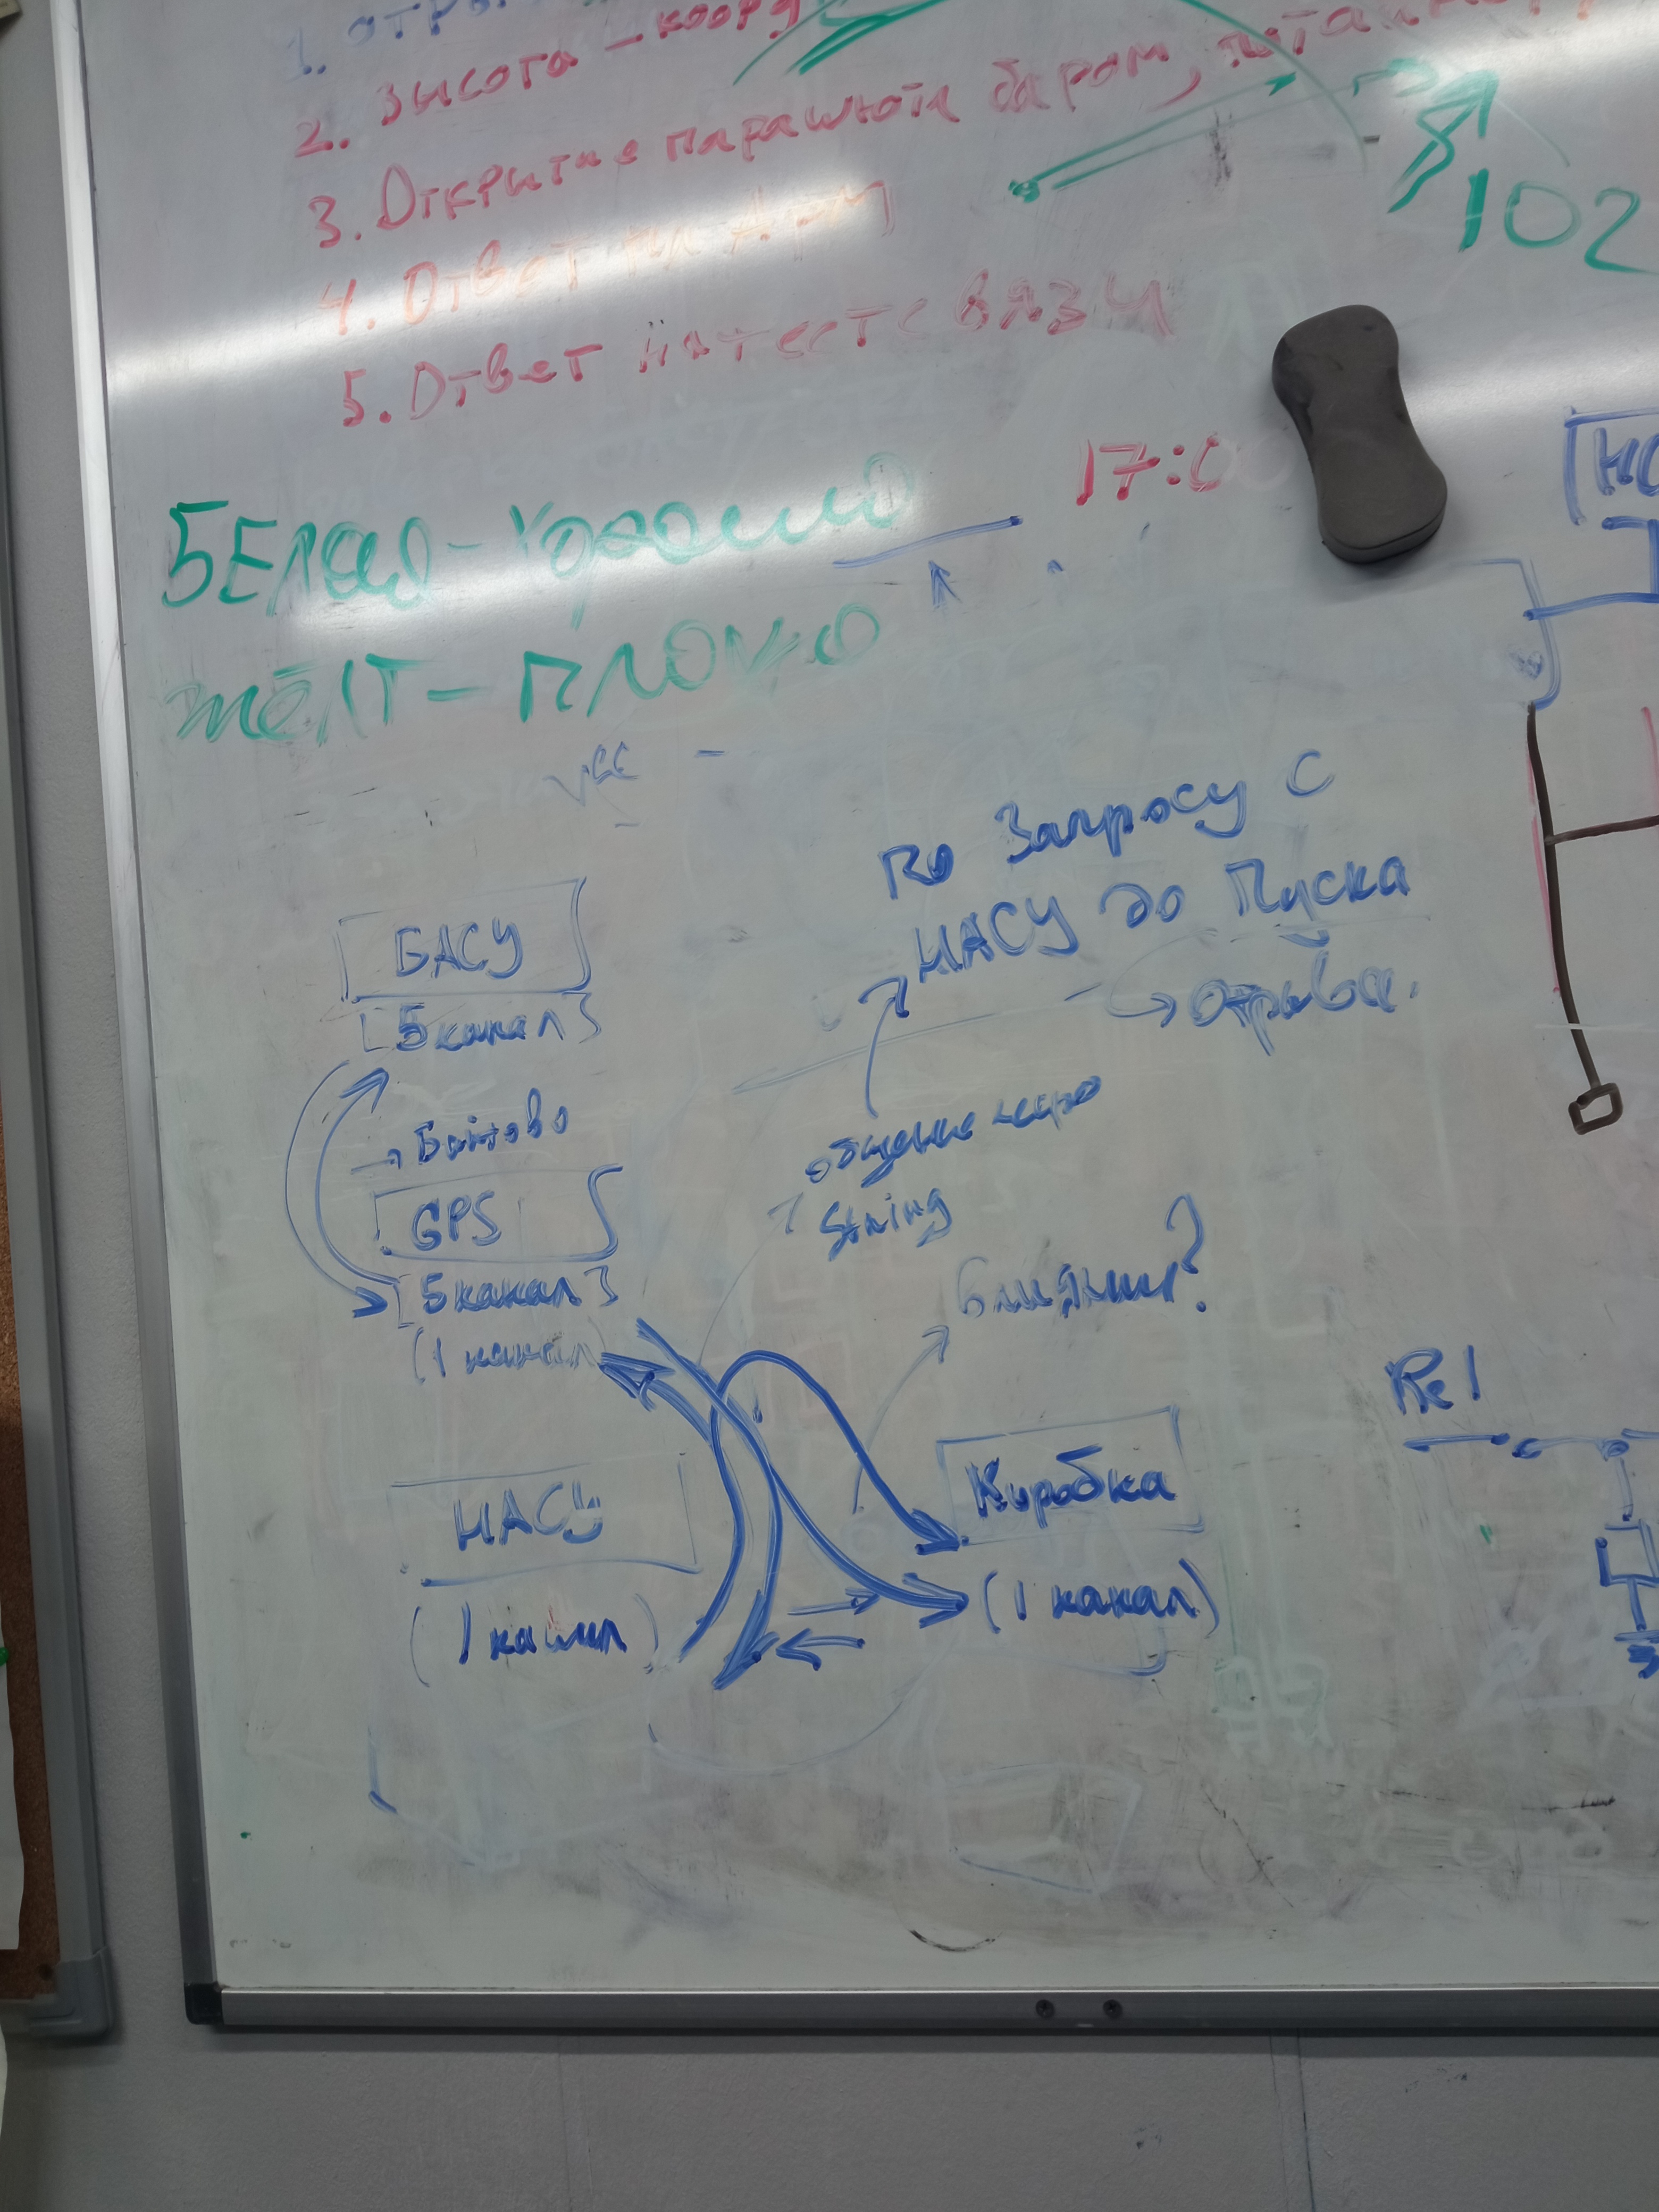 2. Высота - коорд
3. Открытие парашюта баром,
4. Ответ на Арм
5. Ответ на тест связи
102
17:0
БЕЛЫЙ - хорошо
жёлт - плохо
Vcc -
По Запросу с
НАСУ до Пуска
Отрыва.
БАСУ
[5 канал]
Байтово
GPS
[5 канал]
(1 канал
общение через
String
влияние?
НАСУ
(1 канал)
Коробка
(1 канал)
Rel